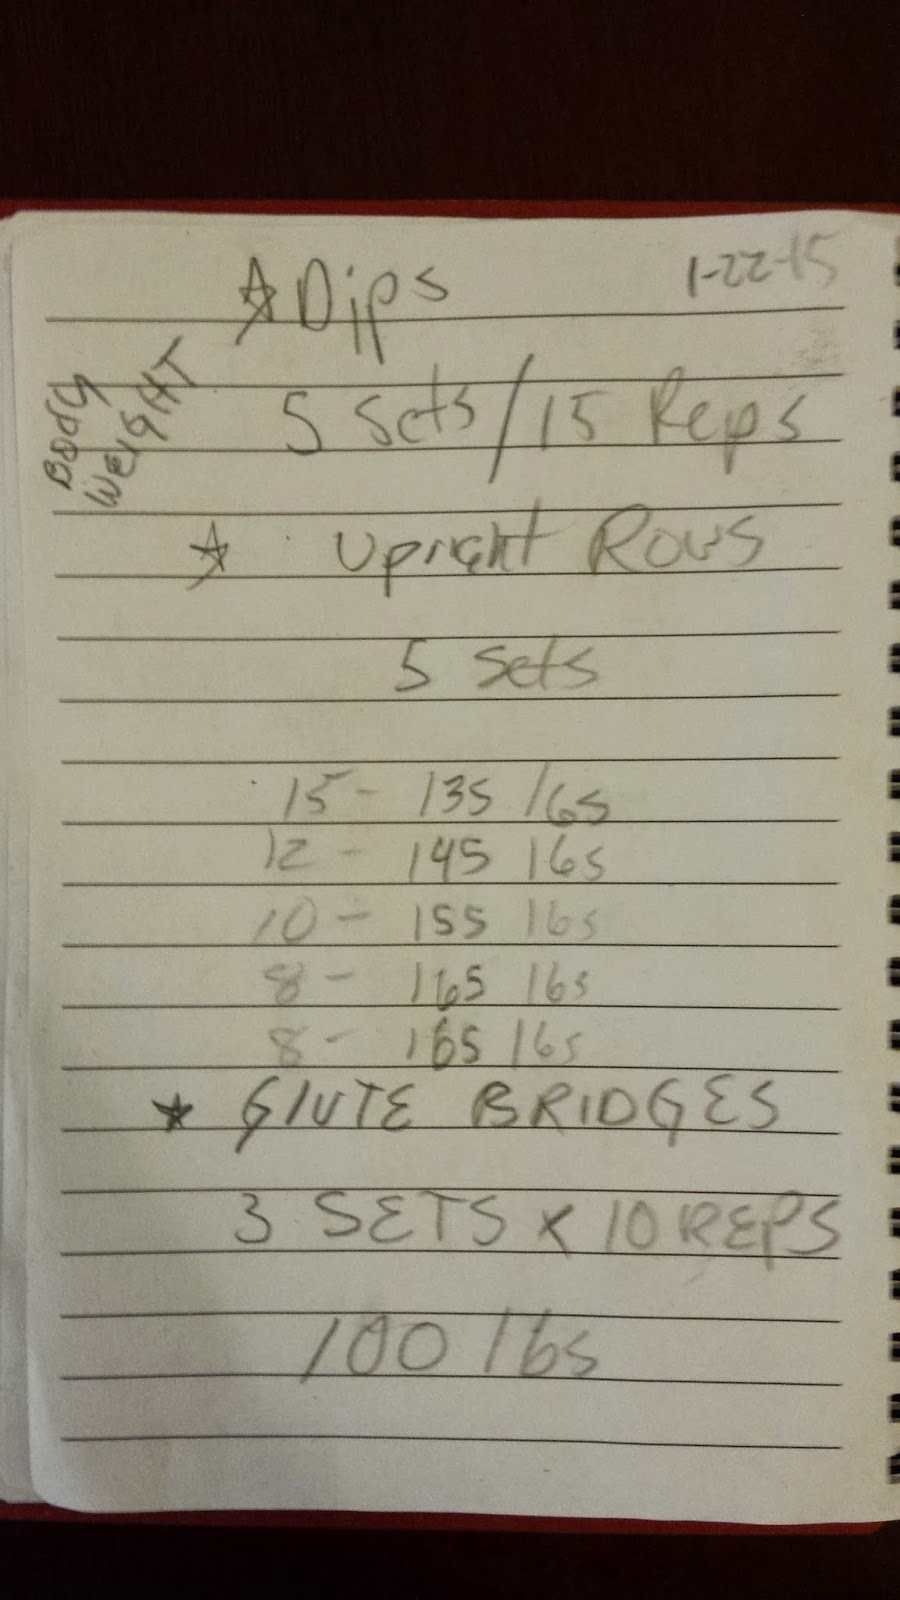 ☆ Dips 1-22-15
BODY
WEIGHT
5 Sets / 15 Reps
☆ Upright Rows
5 Sets
15 - 135 lbs
12 - 145 lbs
10 - 155 lbs
8 - 165 lbs
8 - 165 lbs
★ GlUTE BRIDGES
3 SETS x 10 REPS
100 lbs